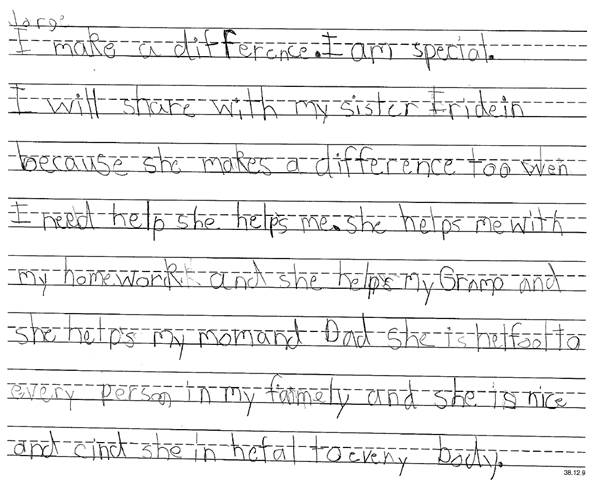 Jorge
I make a difference. I am special.
I will share with my sister Eridein
because she makes a difference too wen
I need help she helps me. she helps me with
my homework and she helps my Gramp and
she helps my mom and Dad she is helfool to
every person in my faimely and she is nice
and cind she in hefal to eveny body.
38.12.9